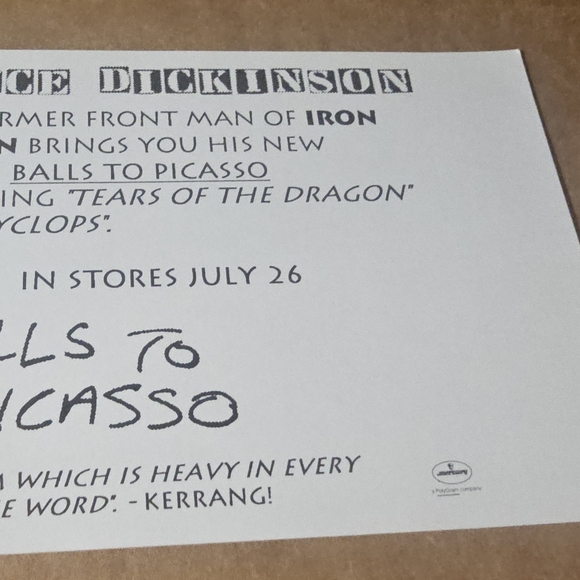 CE DICKINSON
RMER FRONT MAN OF IRON
N BRINGS YOU HIS NEW
BALLS TO PICASSO
ING "TEARS OF THE DRAGON"
YCLOPS".
IN STORES JULY 26
LLS TO
ICASSO
M WHICH IS HEAVY IN EVERY
E WORD". - KERRANG!
mercury
a PolyGram company